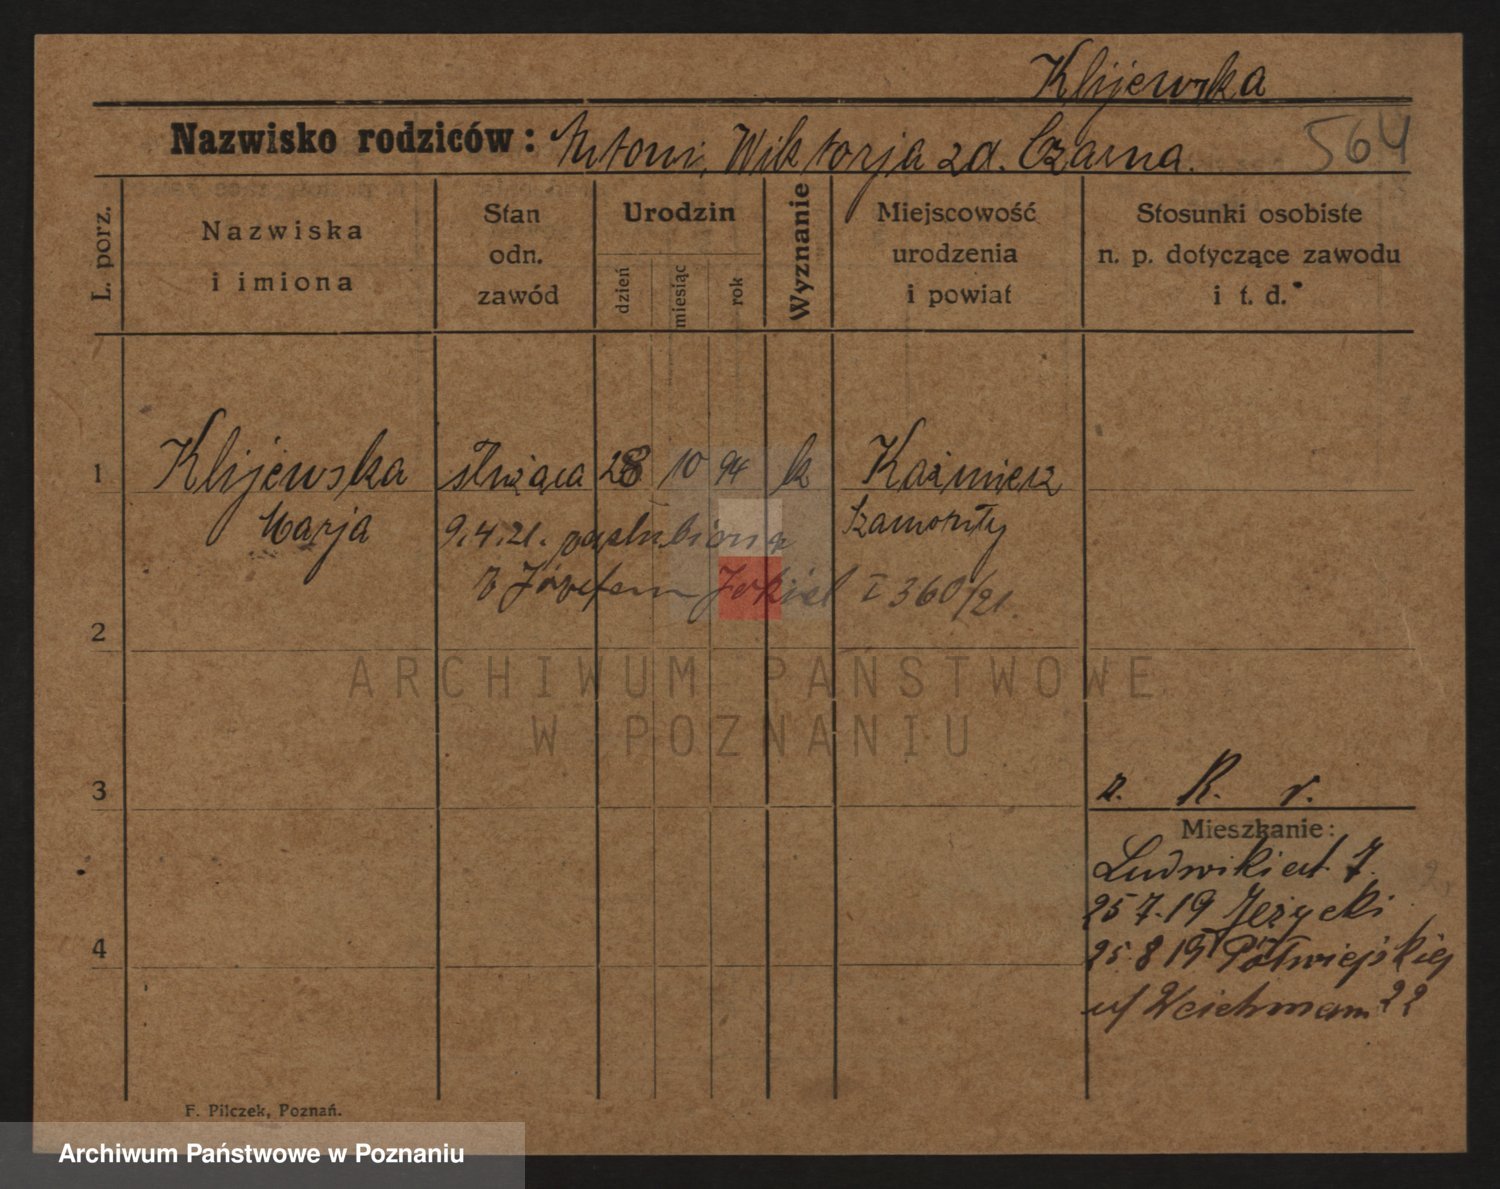 Klijewska
Nazwisko rodziców: Antoni, Wiktorja zd. Czarna. 564
L. porz.
Nazwiska i imiona
Stan odn. zawód
Urodzin
dzień
miesiąc
rok
Wyznanie
Miejscowość urodzenia i powiat
Stosunki osobiste n. p. dotyczące zawodu i t. d.
1 Klijewska służąca 28 10 94 k Kaźmierz
Marja 9.4.21. poślubiona Szamotuły
z Józefem Jekiel I 360/21.
2
ARCHIWUM PAŃSTWOWE
W POZNANIU
3
R. r.
Mieszkanie:
Ludwiki 7.
25 7.19 Jeżycki
4
25.8 19 Półwiejskiej
u/ Weichmann 22
F. Pilczek, Poznań.
Archiwum Państwowe w Poznaniu